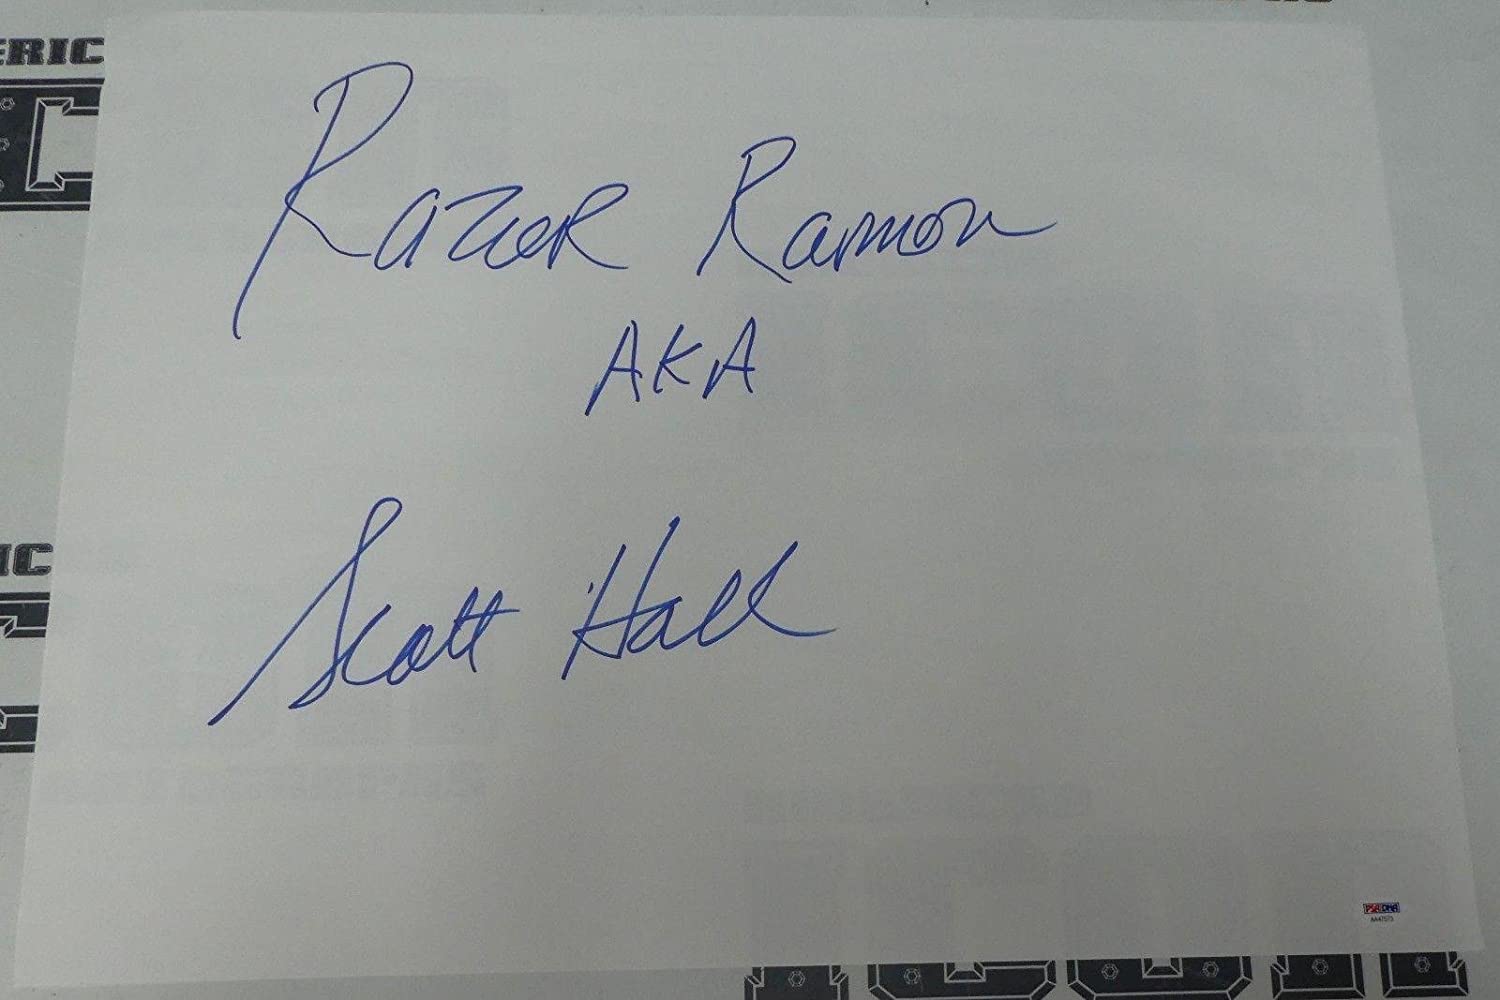 ERIC
Razor Ramon
AKA
IC
Scott Hall
PSA/DNA